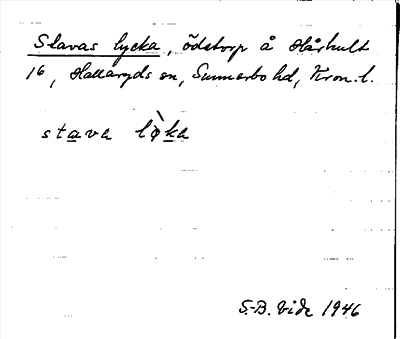 Stavas lycka, ödetorp å Hårhult
16, Hallaryds sn, Sunnerbo hd, Kron. l.
stava lø̀ka
S.-B. Vide 1946